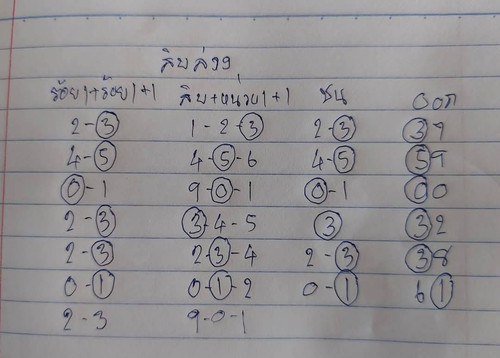 สิบล่าง
ร้อย1+ร้อย1+1 สิบ+หน่วย1+1 ชน ออก
2-3 1-2-3 2-3 39
4-5 4-5-6 4-5 59
0-1 9-0-1 0-1 00
2-3 3-4-5 3 32
2-3 2-3-4 2-3 38
0-1 0-1-2 0-1 61
2-3 9-0-1